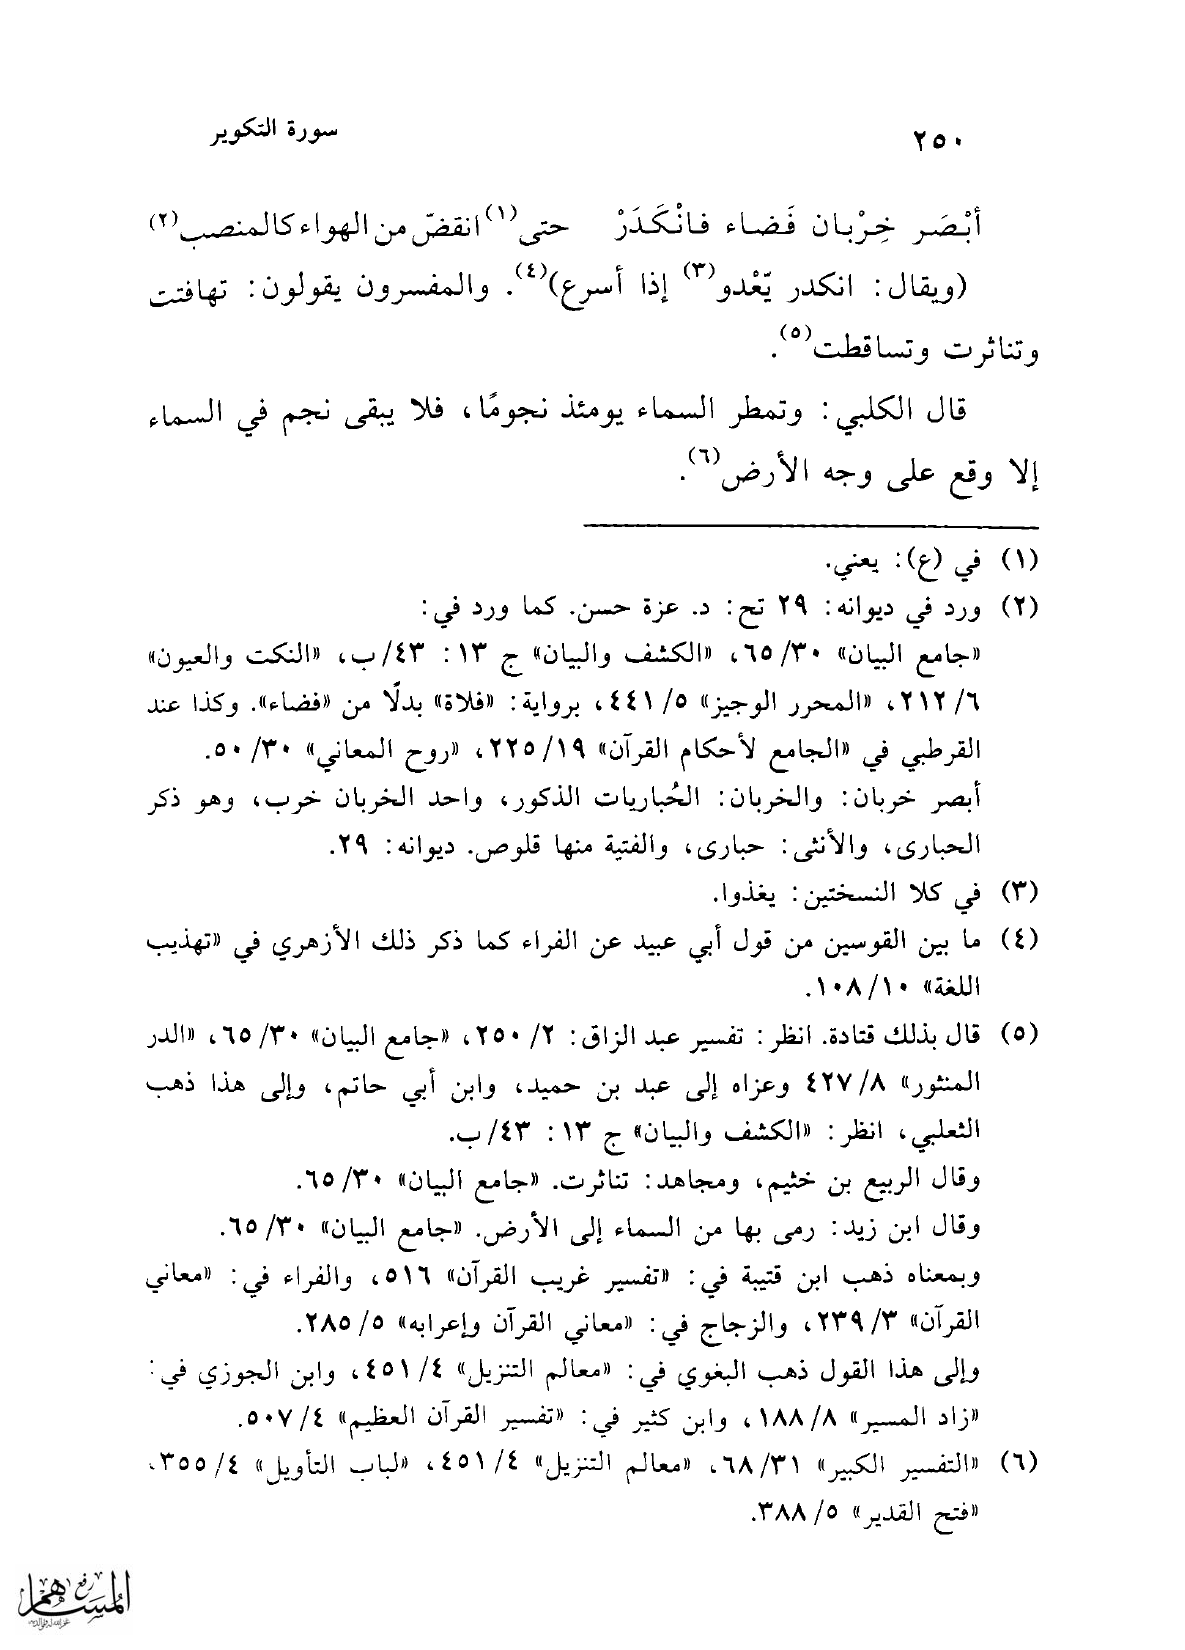 ٢٥٠ سورة التكوير
أبْصَر خِرْبان فَضاء فانْكَدَرْ حتى(١) انقضّ من الهواء كالمنصب(٢)
(ويقال: انكدر يّعْدو(٣) إذا أسرع)(٤). والمفسرون يقولون: تهافتت
وتناثرت وتساقطت(٥).
قال الكلبي: وتمطر السماء يومئذ نجومًا، فلا يبقى نجم في السماء
إلا وقع على وجه الأرض(٦).
(١) في (ع): يعني.
(٢) ورد في ديوانه: ٢٩ تح: د. عزة حسن. كما ورد في:
«جامع البيان» ٣٠/ ٦٥، «الكشف والبيان» ج ١٣: ٤٣/ب، «النكت والعيون»
٦/ ٢١٢، «المحرر الوجيز» ٥/ ٤٤١، برواية: «فلاة» بدلًا من «فضاء». وكذا عند
القرطبي في «الجامع لأحكام القرآن» ١٩/ ٢٢٥، «روح المعاني» ٣٠/ ٥٠.
أبصر خربان: والخربان: الحُباريات الذكور، واحد الخربان خرب، وهو ذكر
الحبارى، والأنثى: حبارى، والفتية منها قلوص. ديوانه: ٢٩.
(٣) في كلا النسختين: يغذوا.
(٤) ما بين القوسين من قول أبي عبيد عن الفراء كما ذكر ذلك الأزهري في «تهذيب
اللغة» ١٠/ ١٠٨.
(٥) قال بذلك قتادة. انظر: تفسير عبد الزاق: ٢/ ٢٥٠، «جامع البيان» ٣٠/ ٦٥، «الدر
المنثور» ٨/ ٤٢٧ وعزاه إلى عبد بن حميد، وابن أبي حاتم، وإلى هذا ذهب
الثعلبي، انظر: «الكشف والبيان» ج ١٣: ٤٣/ب.
وقال الربيع بن خثيم، ومجاهد: تناثرت. «جامع البيان» ٣٠/ ٦٥.
وقال ابن زيد: رمى بها من السماء إلى الأرض. «جامع البيان» ٣٠/ ٦٥.
وبمعناه ذهب ابن قتيبة في: «تفسير غريب القرآن» ٥١٦، والفراء في: «معاني
القرآن» ٣/ ٢٣٩، والزجاج في: «معاني القرآن وإعرابه» ٥/ ٢٨٥.
وإلى هذا القول ذهب البغوي في: «معالم التنزيل» ٤/ ٤٥١، وابن الجوزي في:
«زاد المسير» ٨/ ١٨٨، وابن كثير في: «تفسير القرآن العظيم» ٤/ ٥٠٧.
(٦) «التفسير الكبير» ٣١/ ٦٨، «معالم التنزيل» ٤/ ٤٥١، «لباب التأويل» ٤/ ٣٥٥،
«فتح القدير» ٥/ ٣٨٨.
رفع
المساهم